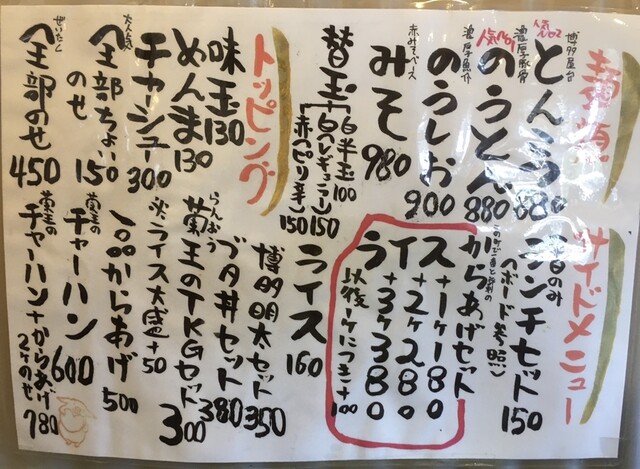 麺類
博多屋台
とんこつ 880
人気No2
濃厚豚骨
のうとん 880
人気No1
濃厚魚介
のうしお 900
赤みそベース
みそ 980
替玉
白半玉 100
白〈レギュラー〉 150
赤〈ピリ辛〉 150
トッピング
味玉 130
めんま 130
チャーシュー 300
大人気
全部ちょい
のせ 150
ぜいたく
全部のせ 450
サイドメニュー
平日のみ
ランチセット 150
〈ボード参照〉
この町で一番と評判の
からあげセット
ライス+1ケ 180
+2ケ 280
+3ケ 380
以後一ケにつき+100
ライス 160
博多明太セット 350
ブタ丼セット 380
らんおう
菊王のTKGセット 300
※ライス大盛+50
一品からあげ 500
菊王の
チャーハン 600
菊王の
チャーハン+からあげ
2ケのせ 780